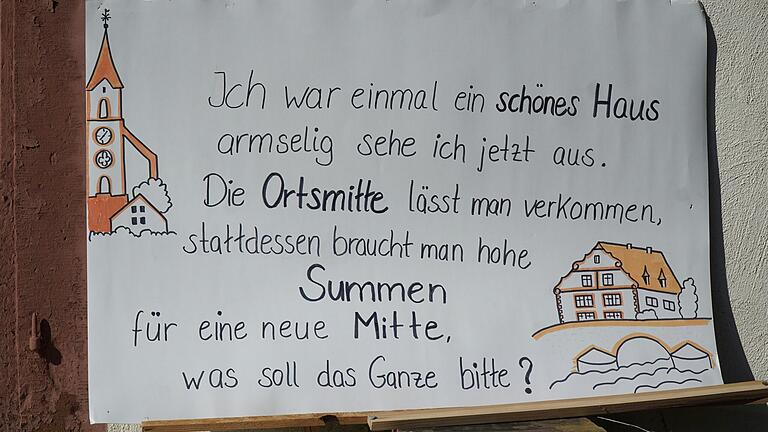 Ich war einmal ein schönes Haus
armselig sehe ich jetzt aus.
Die Ortsmitte lässt man verkommen,
stattdessen braucht man hohe
Summen
für eine neue Mitte,
was soll das Ganze bitte?